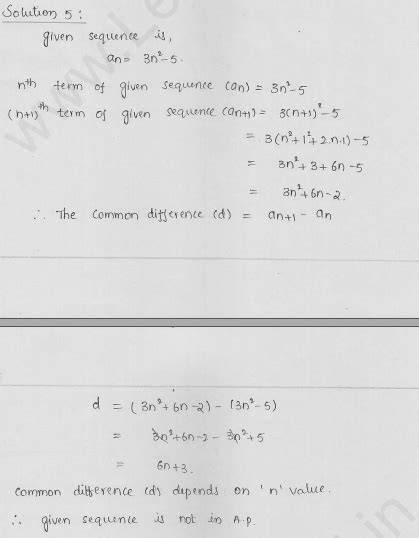 Solution 5:
given sequence is,
an = 3n²-5.
nth term of given sequence (an) = 3n²-5
(n+1)th term of given sequence (an+1) = 3(n+1)²-5
= 3(n²+1²+2.n.1)-5
= 3n²+3+6n-5
= 3n²+6n-2.
∴ The common difference (d) = an+1 - an
d = (3n²+6n-2) - (3n²-5)
= 3n²+6n-2 - 3n²+5
= 6n+3.
common difference (d) depends on 'n' value.
∴ given sequence is not in A.p.